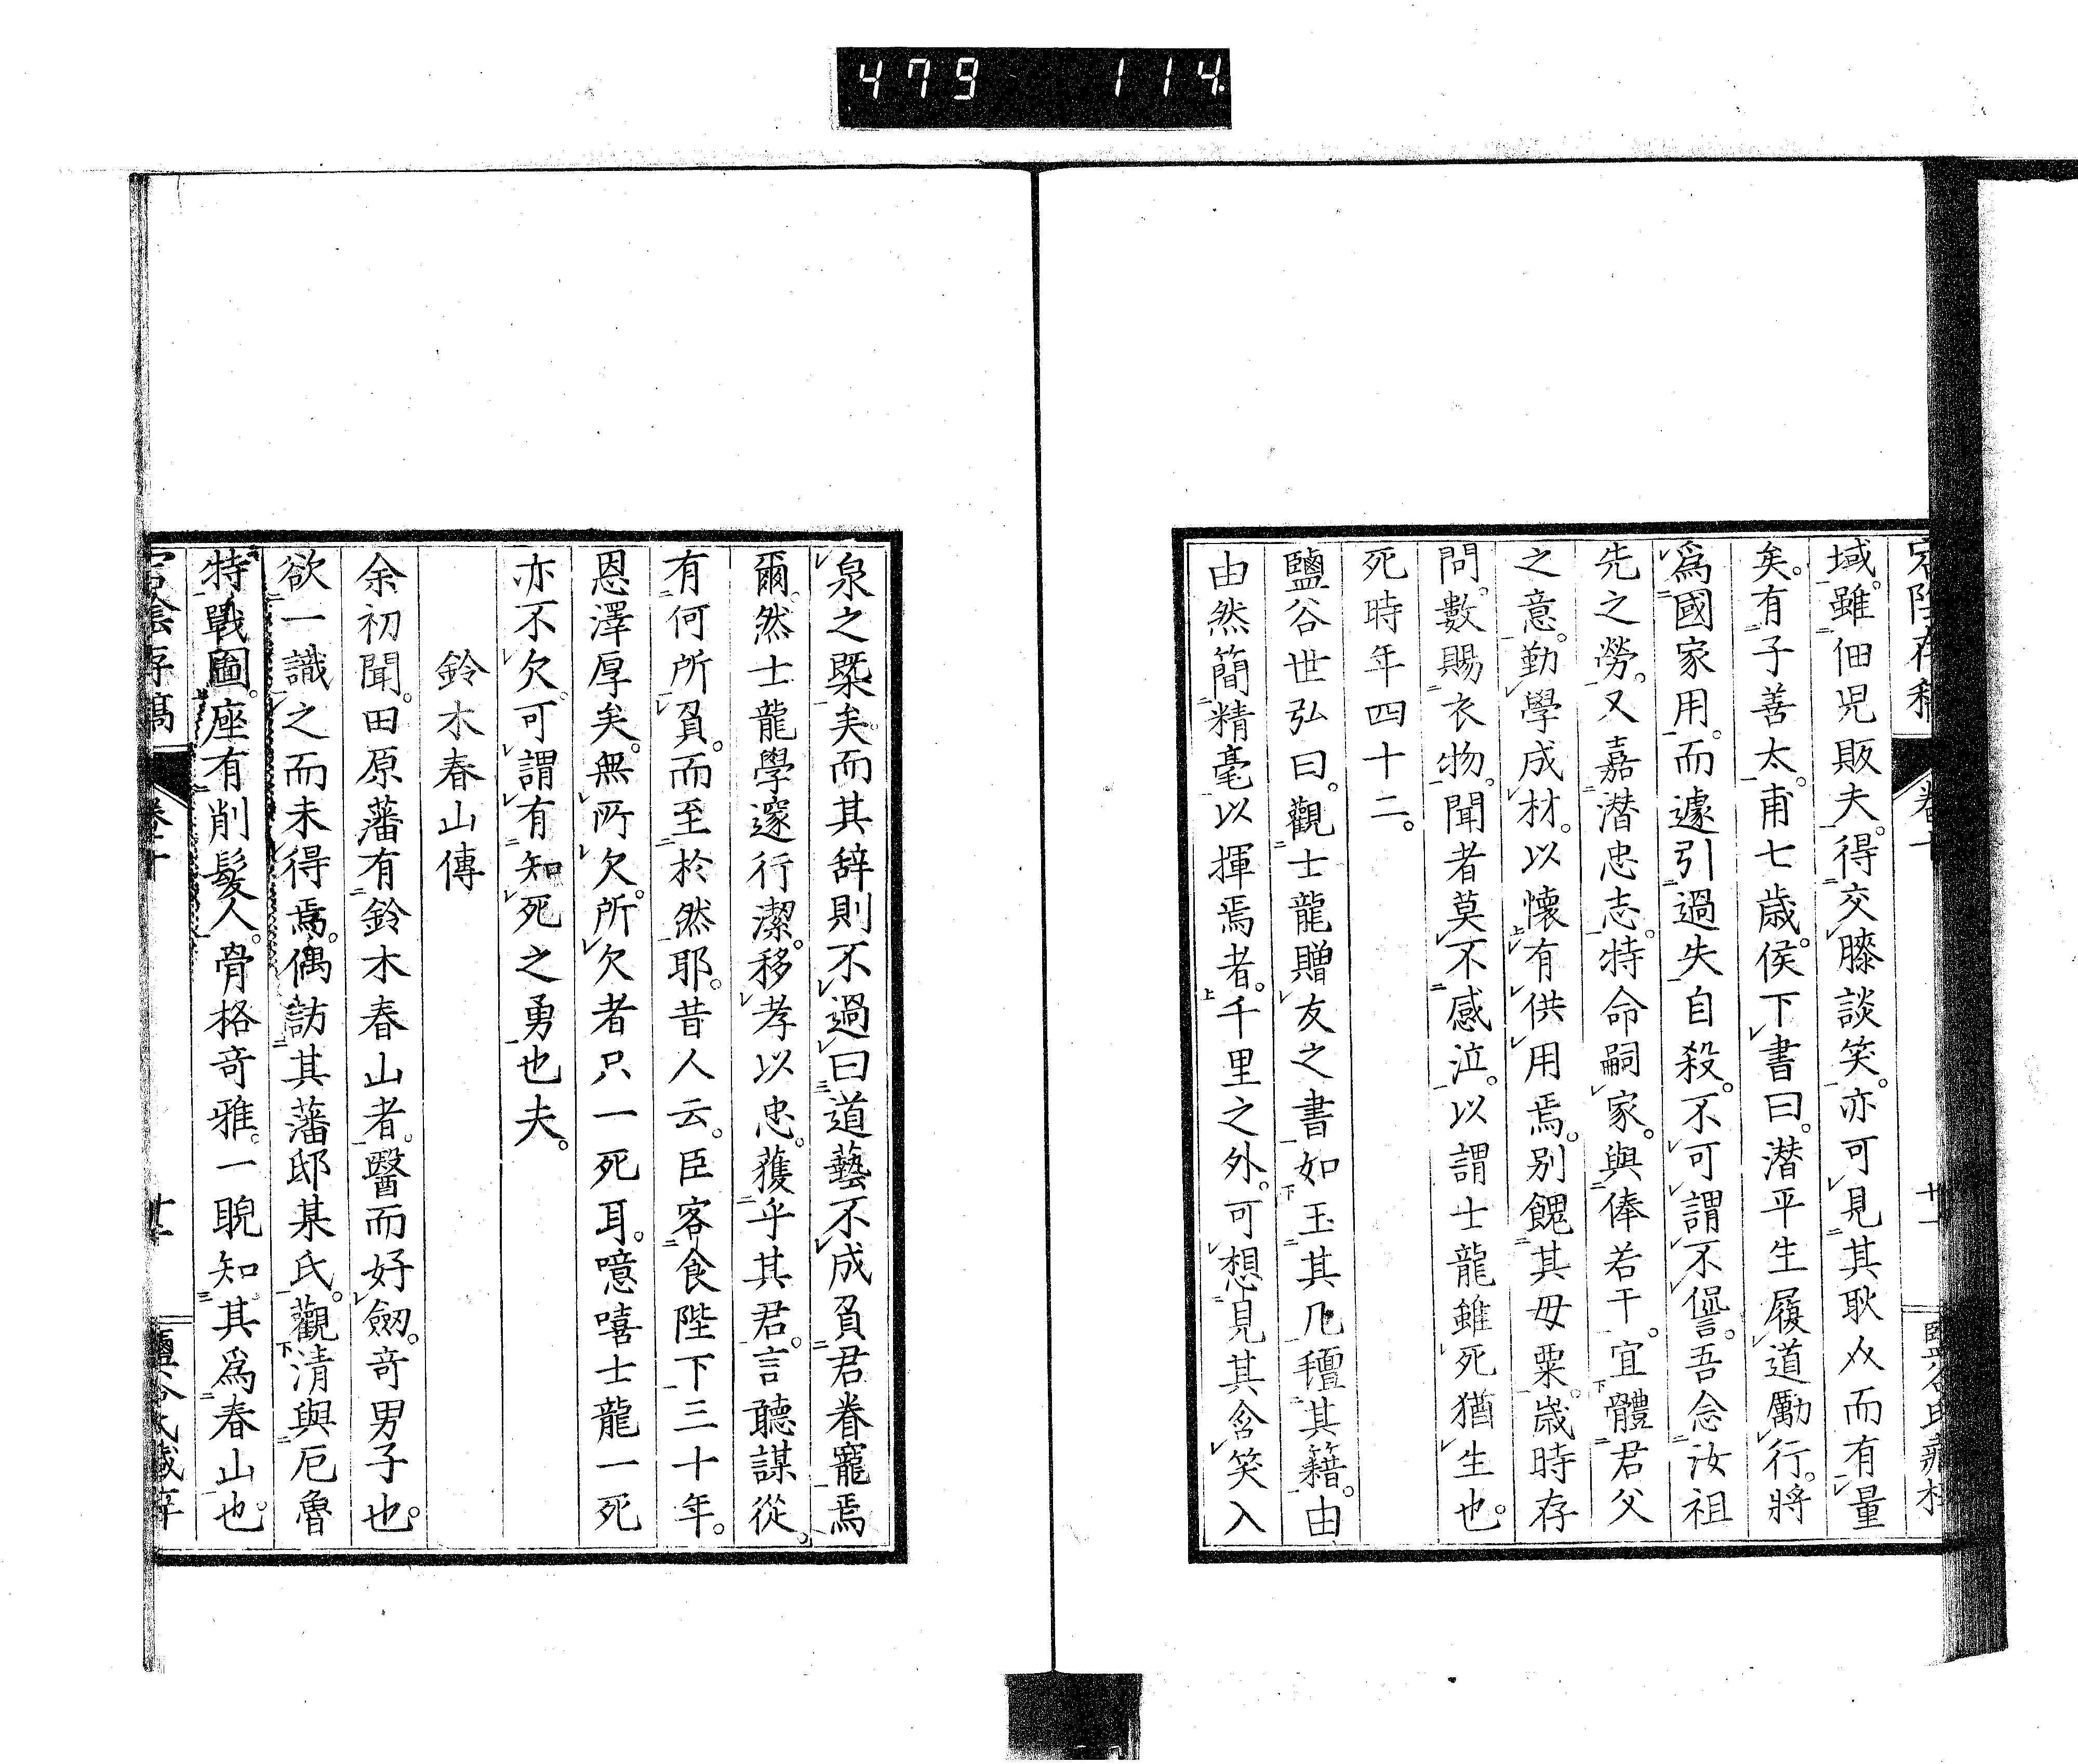 479 114
域。雖佃児販夫。得交膝談笑。亦可見其耿介而有量
矣。有子善太。甫七歳。侯下書曰。潜平生履道勵行。將
爲國家用。而遽引過失自殺。不可謂不僁。吾念汝祖
先之勞。又嘉潜忠志。特命嗣家。與俸若干。宜體君父
之意。勤學成材。以懷有供用焉。別餽其母粟。歳時存
問。數賜衣物。聞者莫不感泣。以謂士龍雖死猶生也。
死時年四十二。
鹽谷世弘曰。觀士龍贈友之書。如玉其凡。其籍。由
由然簡精毫以揮焉者。千里之外。可想見其含笑入
泉之槩矣。而其辞則不過曰道藝不成負君眷寵焉
爾。然士龍學邃行潔。移孝以忠。獲乎其君。言聽謀從。
有何所負。而至於然耶。昔人云。臣客食陛下三十年。
恩澤厚矣。無所欠。所欠者只一死耳。噫嘻士龍一死
亦不欠。可謂有知死之勇也夫。
鈴木春山傳
余初聞。田原藩有鈴木春山者。醫而好劔。奇男子也。
欲一識之而未得焉。偶訪其藩邸某氏。觀清與厄魯
特戰圖。座有削髮人。骨格奇雅。一睨知其爲春山也。
宕陰存稿 卷十